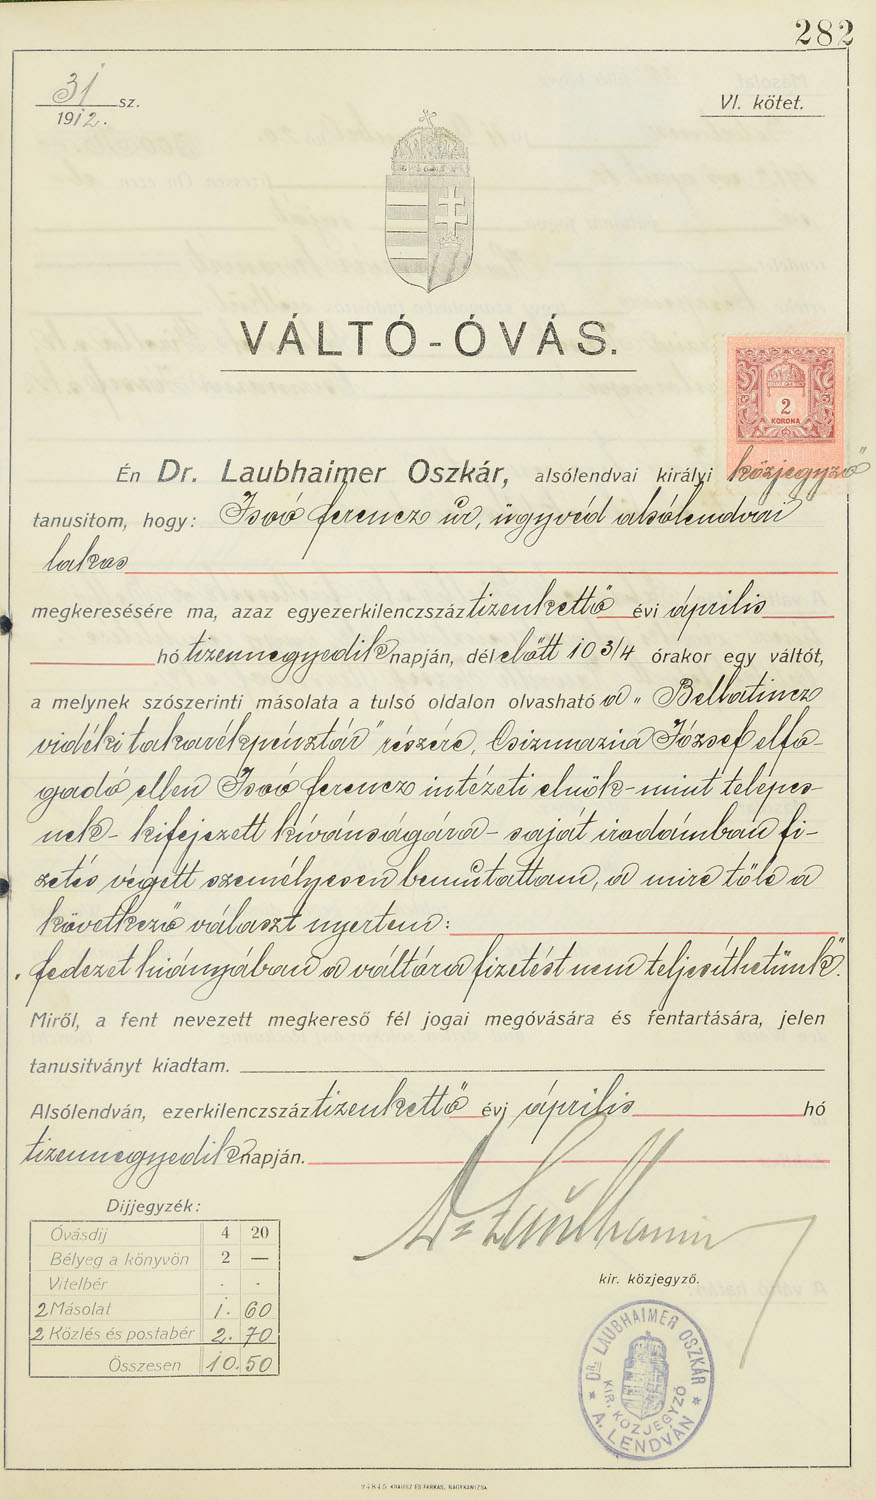 282
31 sz.
1912.
VI. kötet.
VÁLTÓ-ÓVÁS.
2
KORONA
Én Dr. Laubhaimer Oszkár, alsólendvai királyi közjegyző
tanusitom, hogy: Isoó ferencz úr, ügyvéd alsólendvai
lakos
megkeresésére ma, azaz egyezerkilenczszáz tizenkettő évi április
hó tizennegyedik napján, dél előtt 10 3/4 órakor egy váltót,
a melynek szószerinti másolata a tulsó oldalon olvasható a „Bellatincz
vidéki takarékpénztár" részére, Csizmazia József elfo-
gadó ellen Isoó ferencz intézeti elnök - mint telepes-
nek - kifejezett kívánságára - saját irodámban fi-
zetés végett személyesen bemutattam, a mire tőle a
következő választ nyertem:
„fedezet hiányában a váltóra fizetést nem teljesíthetünk".
Miről, a fent nevezett megkereső fél jogai megóvására és fentartására, jelen
tanusitványt kiadtam.
Alsólendván, ezerkilenczszáz tizenkettő évj április hó
tizennegyedik napján.
Dr Laubhaimer
kir. közjegyző.
Dijjegyzék:
Óvásdij 4 20
Bélyeg a könyvön 2 —
Vitelbér - -
2 Másolat 1. 60
2 Közlés és postabér 2. 70
Összesen 10. 50
DR. LAUBHAIMER OSZKÁR
KIR. KÖZJEGYZŐ
* A. LENDVÁN *
24845 KRAUSZ ÉS FARKAS, NAGYKANIZSA